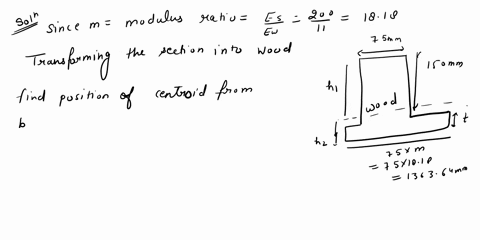 Solⁿ Since m = modulus ratio = Es/Ew = 200/11 = 18.18
Transforming the section into wood
find position of centroid from
b
75mm
150mm
h₁
wood
h₂
t
75 x m
= 75 x 18.18
= 1363.64mm